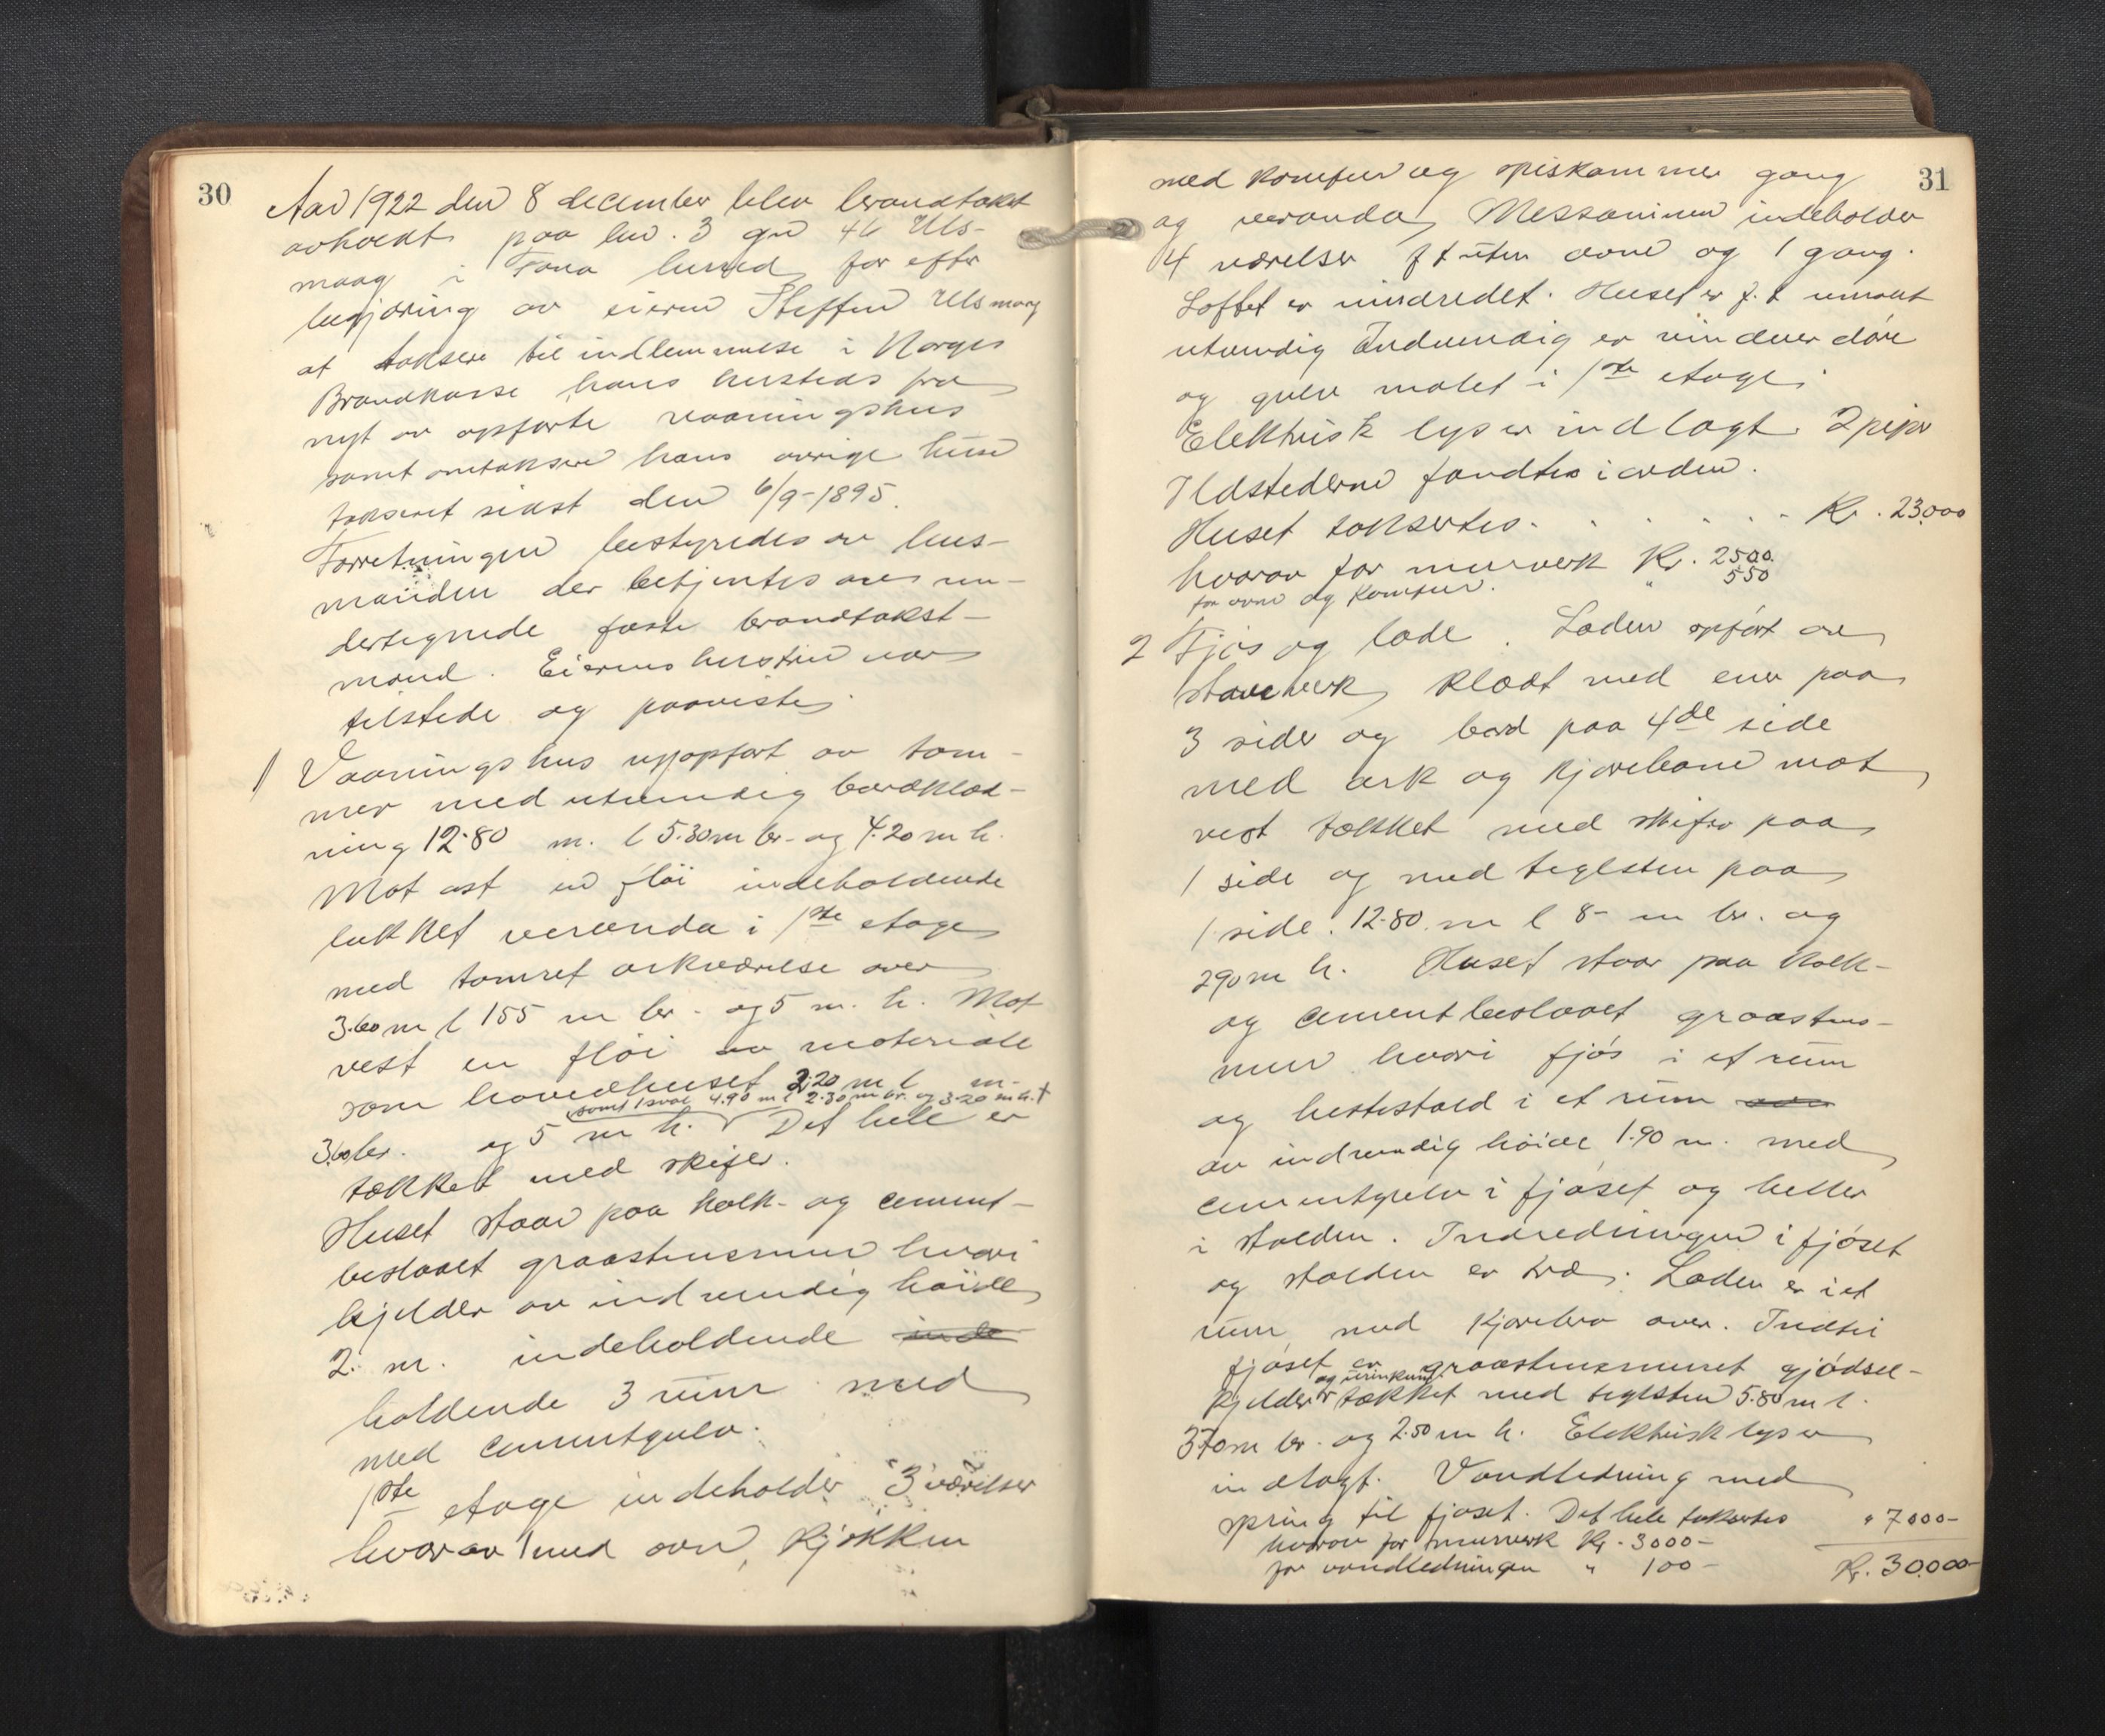 30
Aar 1922 den 8 december blev brandtakst
avholdt paa br. 3 gn 46 Uls-
maag i Fana herred for efter
begjæring av eieren Steffen Ulsmaag
at taksere til indlemmelse i Norges
Brandkasse hans husteds fra
nyt av opførte vaaningshus
samt omtaksere hans øvrige huse
takseret sidst den 6/9-1895.
Forretningen bestyredes av lens-
manden der betjentes av un-
dertegnede faste brandtakst-
mænd. Eierens hustru var
tilstede og paaviste
1 Vaaningshus nyopført av tøm-
mer med utvendig bordklæd-
ning 12.80 m. l 5.30 m br. og 4.20 m h.
Mot øst en fløi indeholdende
lukket veranda i 1ste etage
med tømret arkværelse over
3.60 m l 155 m br. og 5 m. h. Mot
vest en fløi av materiale
som hovedhuset 3.20 m l m-
samt 1 sval 4.90 m l 2.30 m br. og 3.20 m h. +
3.60 br. og 5 m h. Det hele er
tækket med skifer.
Huset staar paa kalk- og cement-
beslaaet graastensmur hvori
kjelder av indvendig høide
2. m. indeholdende inde
holdende 3 rum med
med cementgulv.
1ste etage indeholder 3 værelser
hvorav 1 med ovn, kjøkken
31
med komfur og spiskammer gang
og veranda, Messaninen indeholder
4 værelser f t uten ovne og 1 gang.
Loftet er uindredet. Huset er f. t umalt
utvendig Indvendig er vinduer døre
og gulv malet i 1ste etage.
Elektrisk lys er indlagt. 2 piper
Ildstederne fandtes i orden.
Huset taksertes. . . . . . Kr. 23000
hvorav for murverk Kr. 2500.
for ovne og komfur. " 550
2 Fjøs og lade. Laden opført av
stavverk klædt med ener paa
3 sider og bord paa 4de side
med ark og kjørebane mot
vest tækket med skifer paa
1 side og med teglsten paa
1 side. 12.80 m l 8- m br. og
290 m h. Huset staar paa kalk-
og cementbeslaaet graastens-
mur hvori fjøs i et rum
og hestestald i et rum
av indvendig høide 1.90 m. med
cementgulv i fjøset og heller
i stalden. Indredningen i fjøset
og stalden er træ. Laden er i et
rum med kjørebro over. Indtil
fjøset en graastensmuret gjødsel-
og urinkum
kjelder tækket med teglsten 5.80 m l.
370 m br. og 2.50 m h. Elektrisk lys er
indlagt. Vandledning med
spring til fjøset. Det hele taksertes " 7000-
hvorav for murverk Kr. 3000-
for vandledningen " 100- Kr. 30.000-